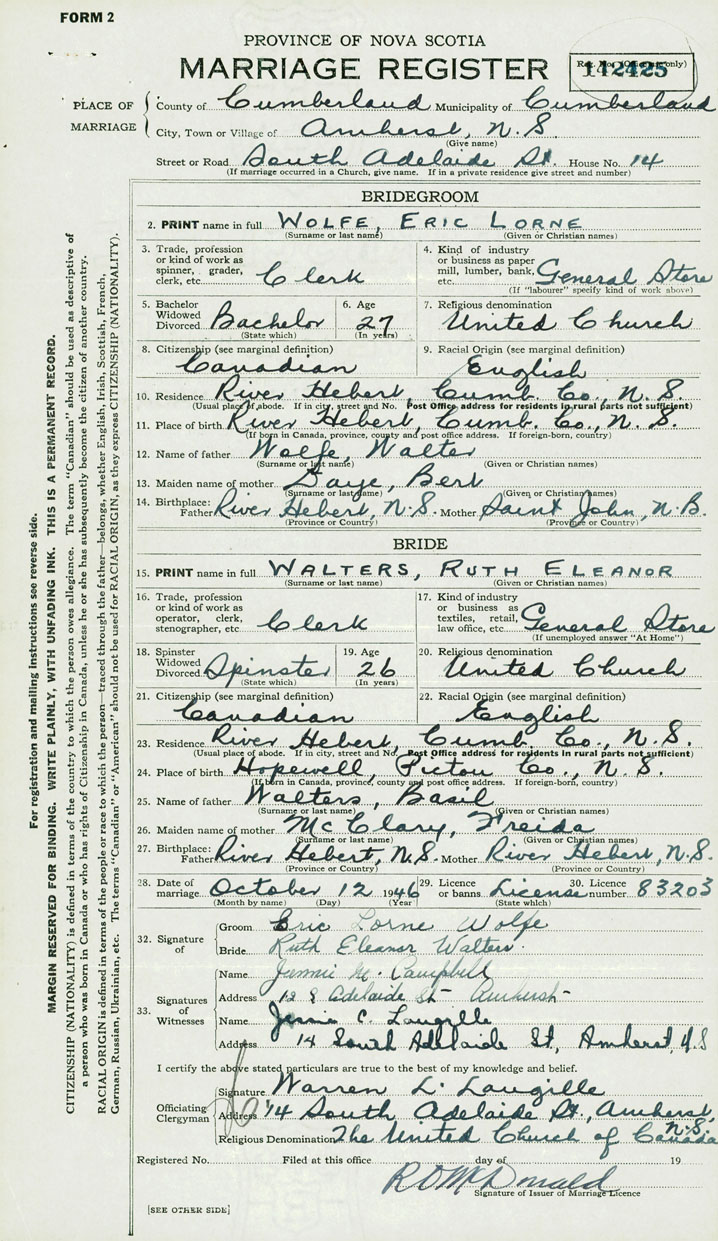 FORM 2
PROVINCE OF NOVA SCOTIA
MARRIAGE REGISTER
Reg. No. (Office use only)
142425
PLACE OF MARRIAGE
County of Cumberland Municipality of Cumberland
City, Town or Village of Amherst, N.S
(Give name)
Street or Road South Adelaide St. House No. 14
(If marriage occurred in a Church, give name. If in a private residence give street and number)
BRIDEGROOM
2. PRINT name in full WOLFE, ERIC LORNE
(Surname or last name) (Given or Christian names)
3. Trade, profession or kind of work as spinner, grader, clerk, etc. Clerk
4. Kind of industry or business as paper mill, lumber, bank, etc. General Store
(If "labourer" specify kind of work above)
5. Bachelor Widowed Divorced Bachelor
(State which)
6. Age 27
(In years)
7. Religious denomination
United Church
8. Citizenship (see marginal definition)
Canadian
9. Racial Origin (see marginal definition)
English
10. Residence River Hebert, Cumb. Co., N.S.
(Usual place of abode. If in city, street and No. Post Office address for residents in rural parts not sufficient)
11. Place of birth River Hebert, Cumb. Co., N.S.
(If born in Canada, province, county and post office address. If foreign-born, country)
12. Name of father Wolfe, Walter
(Surname or last name) (Given or Christian names)
13. Maiden name of mother Daye, Bert
(Surname or last name) (Given or Christian names)
14. Birthplace: Father River Hebert, N.S. Mother Saint John, N.B.
(Province or Country) (Province or Country)
BRIDE
15. PRINT name in full WALTERS, RUTH ELEANOR
(Surname or last name) (Given or Christian names)
16. Trade, profession or kind of work as operator, clerk, stenographer, etc. Clerk
17. Kind of industry or business as textiles, retail, law office, etc. General Store
(If unemployed answer "At Home")
18. Spinster Widowed Divorced Spinster
(State which)
19. Age 26
(In years)
20. Religious denomination
United Church
21. Citizenship (see marginal definition)
Canadian
22. Racial Origin (see marginal definition)
English
23. Residence River Hebert, Cumb. Co., N.S.
(Usual place of abode. If in city, street and No. Post Office address for residents in rural parts not sufficient)
24. Place of birth Hopewell, Pictou Co., N.S.
(If born in Canada, province, county and post office address. If foreign-born, country)
25. Name of father Walters, Basil
(Surname or last name) (Given or Christian names)
26. Maiden name of mother McClary, Freida
(Surname or last name) (Given or Christian names)
27. Birthplace: Father River Hebert, N.S. Mother River Hebert, N.S.
(Province or Country) (Province or Country)
28. Date of marriage October 12 1946
(Month by name) (Day) (Year)
29. Licence or banns License
(State which)
30. Licence number 83203
32. Signature of
Groom Eric Lorne Wolfe
Bride Ruth Eleanor Walters.
33. Signatures of Witnesses
Name Jennie M. Campbell
Address 12 S Adelaide St Amherst
Name Jessie C. Langille
Address 14 South Adelaide St, Amherst N.S
I certify the above stated particulars are true to the best of my knowledge and belief.
Officiating Clergyman
Signature Warren L. Langille
Address 14 South Adelaide St., Amherst, N.S.
Religious Denomination The United Church of Canada
Registered No. Filed at this office day of 19
R D McDonald
Signature of Issuer of Marriage Licence
[SEE OTHER SIDE]
For registration and mailing instructions see reverse side.
MARGIN RESERVED FOR BINDING. WRITE PLAINLY, WITH UNFADING INK. THIS IS A PERMANENT RECORD.
CITIZENSHIP (NATIONALITY) is defined in terms of the country to which the person owes allegiance. The term "Canadian" should be used as descriptive of
a person who was born in Canada or who has rights of Citizenship in Canada, unless he or she has subsequently become the citizen of another country.
RACIAL ORIGIN is defined in terms of the people or race to which the person—traced through the father—belongs, whether English, Irish, Scottish, French,
German, Russian, Ukrainian, etc. The terms "Canadian" or "American" should not be used for RACIAL ORIGIN, as they express CITIZENSHIP (NATIONALITY).